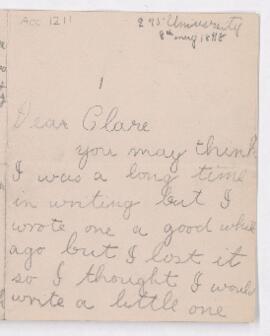 Acc 1211
275 University
8th may 1898
1
Dear Clare
you may think
I was a long time
in writing but I
wrote one a good while
ago but I lost it
so I thought I would
write a little one